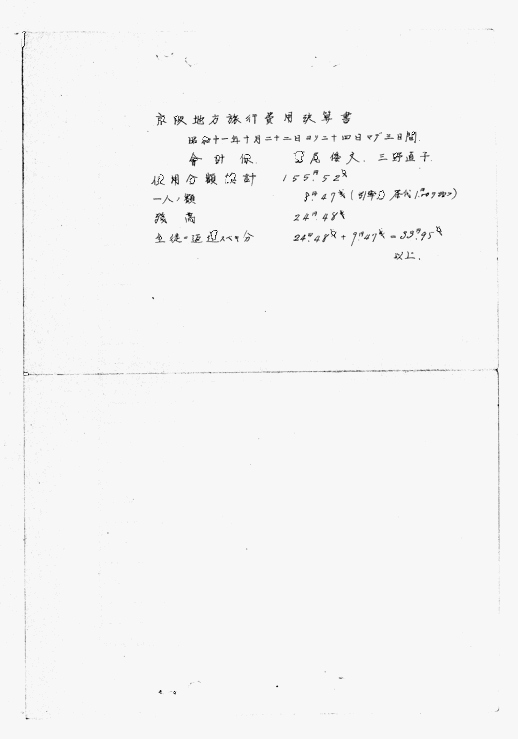 京阪地方旅行費用決算書
昭和十一年十月二十二日ヨリ二十四日マデ三日間.
會計係. 尾俊夫. 三野直子.
使用分額総計 155円.52銭
一人ノ額 9円.47銭
残高 24円.48銭
生徒ニ返還スベキ分 24円.48銭 + 9円.47銭 = 33円.95銭
以上.